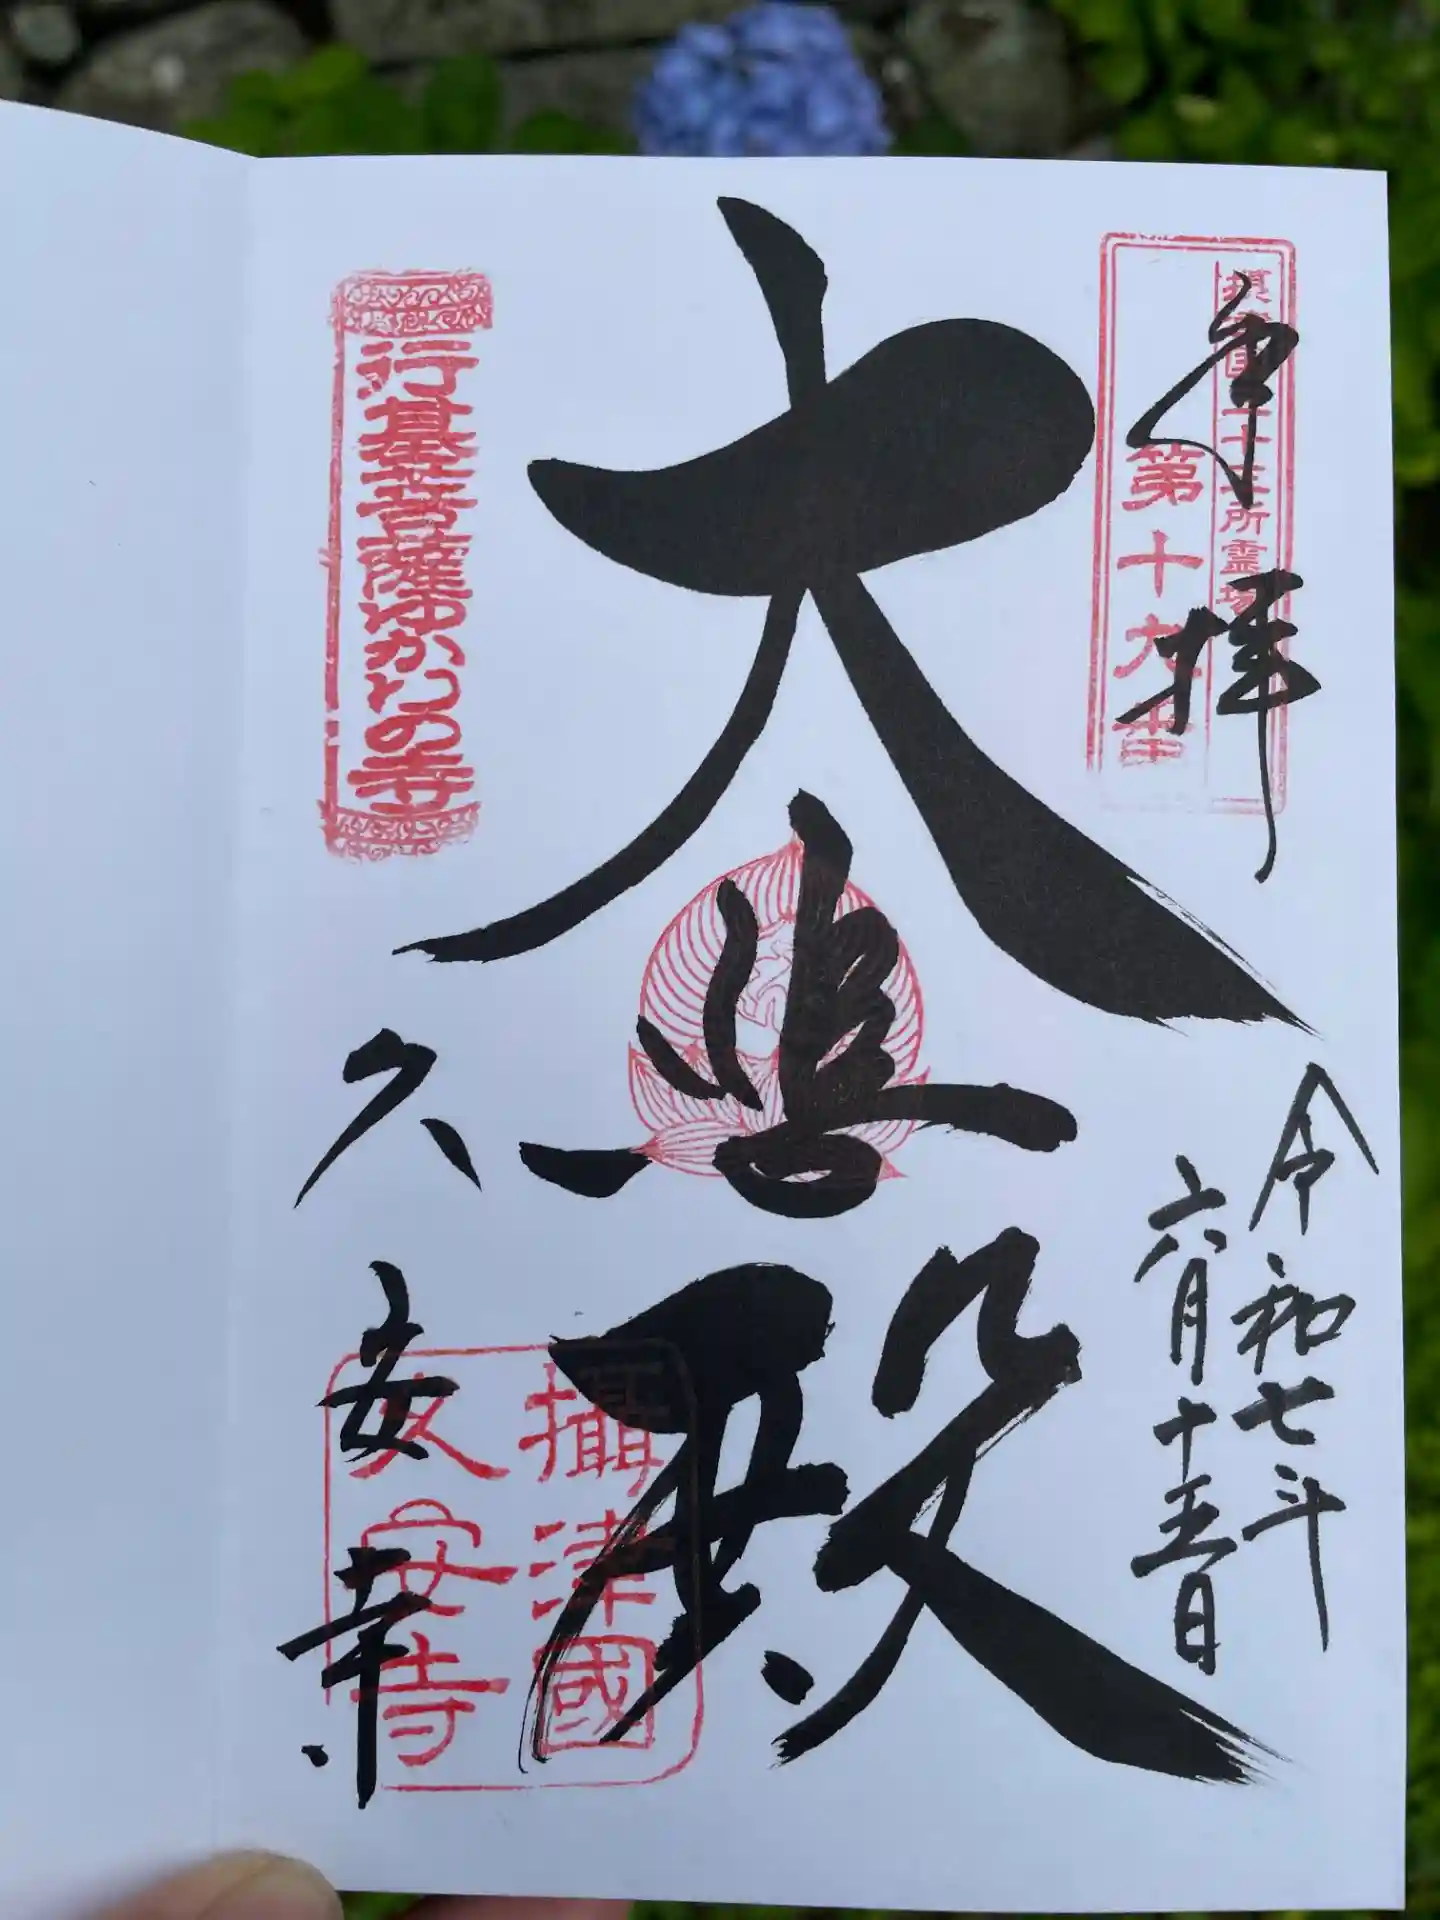 奉拝
摂津国三十三所霊場
第十九番
令和七年
六月十五日
大悲殿
行基菩薩ゆかりの寺
久安寺
攝津國
久安寺